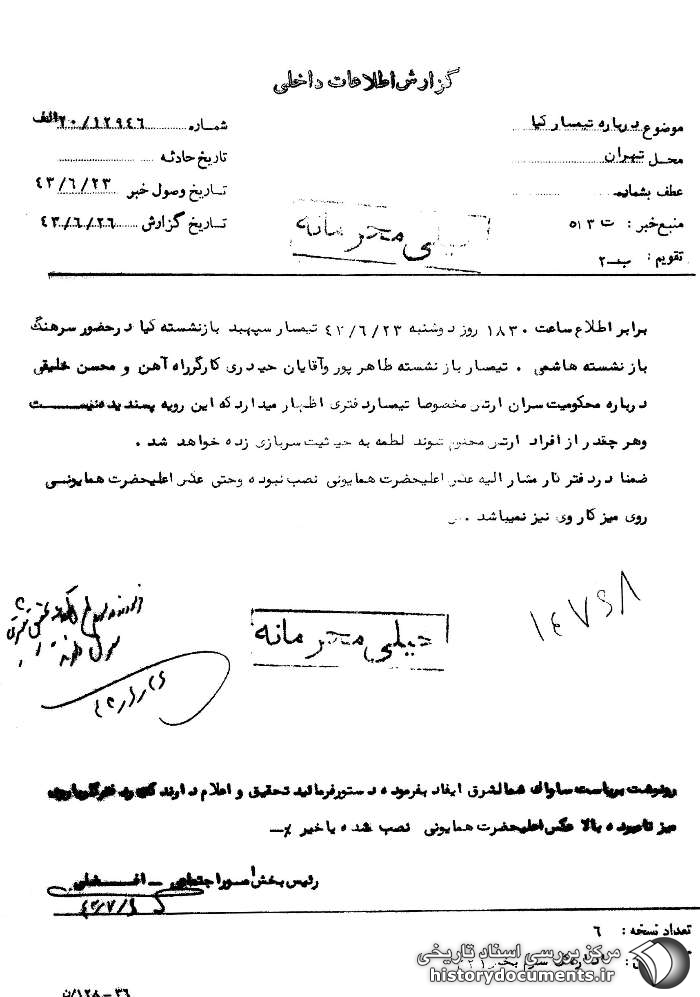 گزارش اطلاعات داخلی
موضوع درباره تیمسار کیا
شماره ۲۰/۱۲۹۴۶الف
محل تهران
تاریخ حادثه
عطف بشماره
تاریخ وصول خبر ۴۳/۶/۲۳
منبع خبر : ت ۵۱۳
تاریخ گزارش ۴۳/۶/۲۶
خیلی محرمانه
تقویم : ب-۲
برابر اطلاع ساعت ۱۸۳۰ روز دوشنبه ۴۳/۶/۲۳ تیمسار سپهبد بازنشسته کیا در حضور سرهنگ
بازنشسته هاشمی . تیمسار بازنشسته طاهرپور وآقایان حیدری کارگر راه آهن و محسن خلیقی
درباره محکومیت سران ارتش مخصوصا تیمسار دفتری اظهار میدارد که این رویه پسندیده نیست
وهر چقدر از افراد ارتش محکوم شوند لطمه به حیثیت سربازی زده خواهد شد .
ضمنا در دفتر کار مشارالیه عکس اعلیحضرت همایونی نصب نبوده وحتی عکس اعلیحضرت همایونی
روی میز کار وی نیز نمیباشد .
۱۴۷۶۸
خیلی محرمانه
رونوشت بریاست ساواک شمالشرق ایفاد بفرموده دستور فرمائید تحقیق و اعلام دارند که
میز نامبرده بالا عکس اعلیحضرت همایونی نصب شده یا خیر
رئیس بخش امور اجتماعی - افضلی
تعداد نسخه : ۶
مرکز بررسی اسناد تاریخی
historydocuments.ir
۳۶-۱۲۸/ن